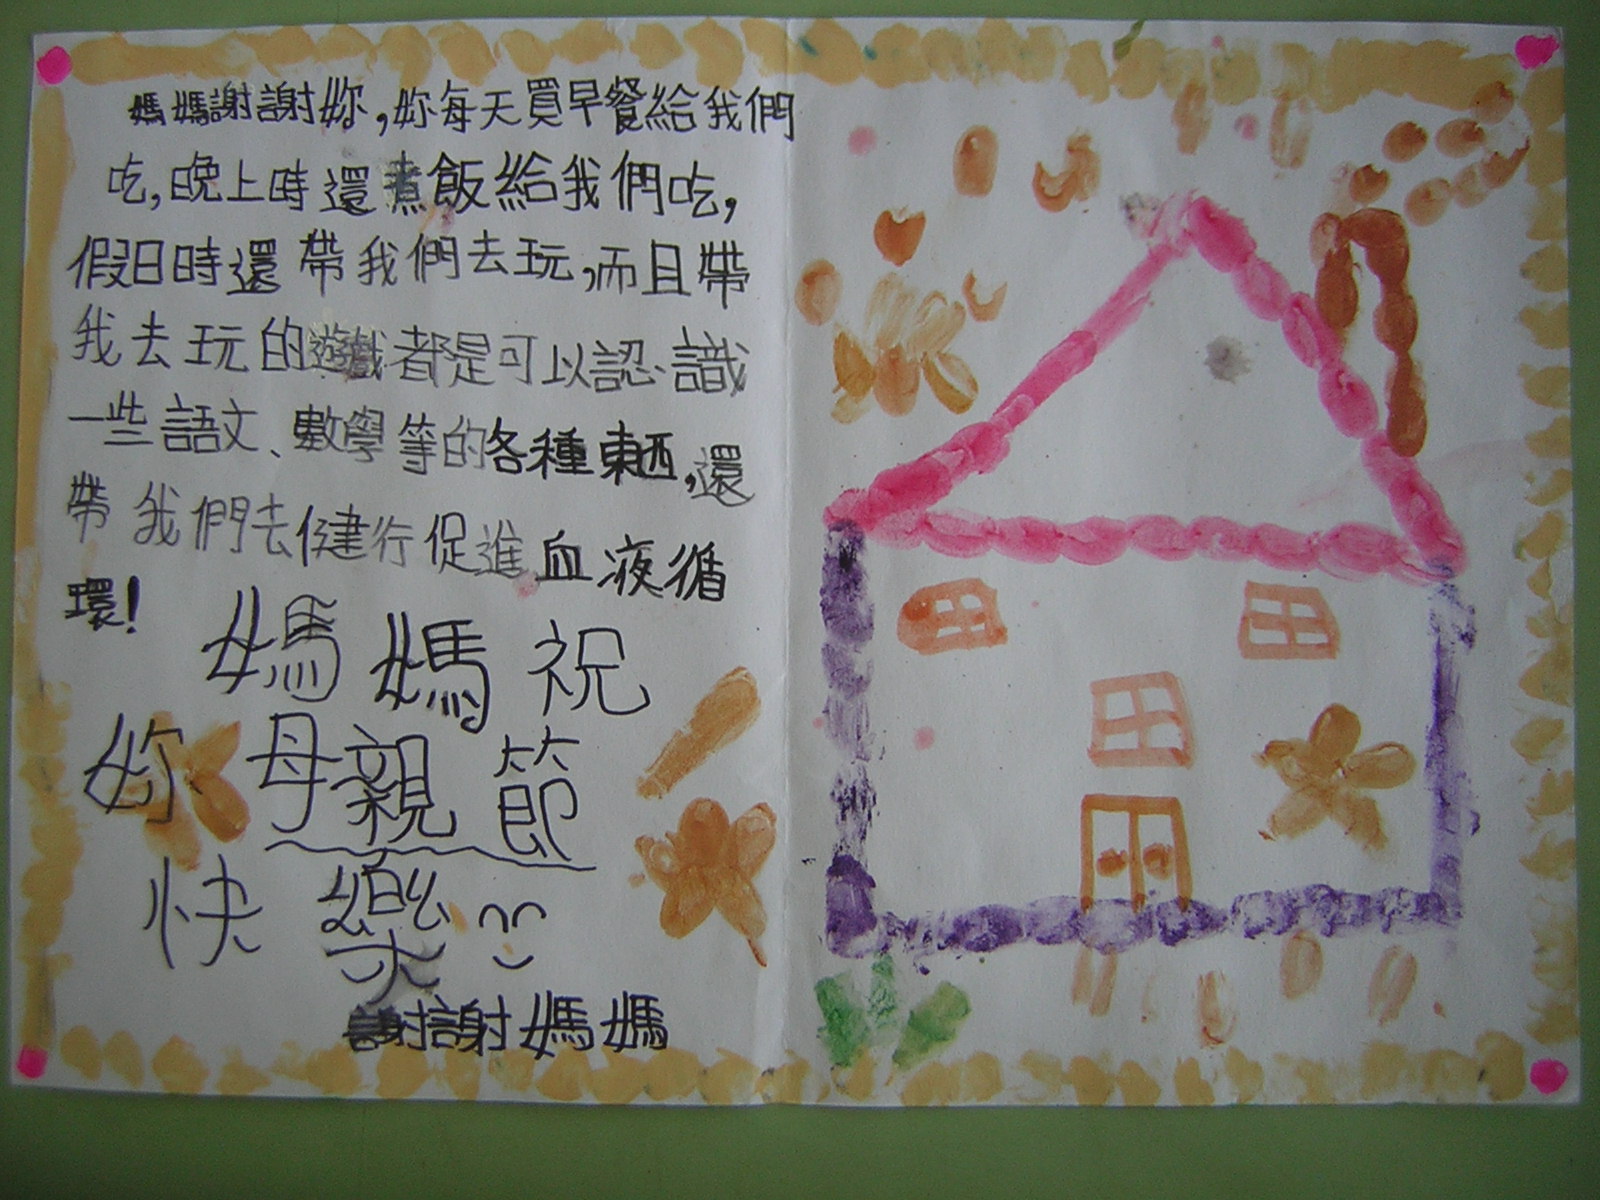 媽媽謝謝妳,妳每天買早餐給我們
吃,晚上時還煮飯給我們吃,
假日時還帶我們去玩,而且帶
我去玩的遊戲都是可以認識
一些語文、數學等的各種東西,還
帶我們去健行促進血液循
環!
媽媽祝
妳母親節
快樂
謝謝媽媽